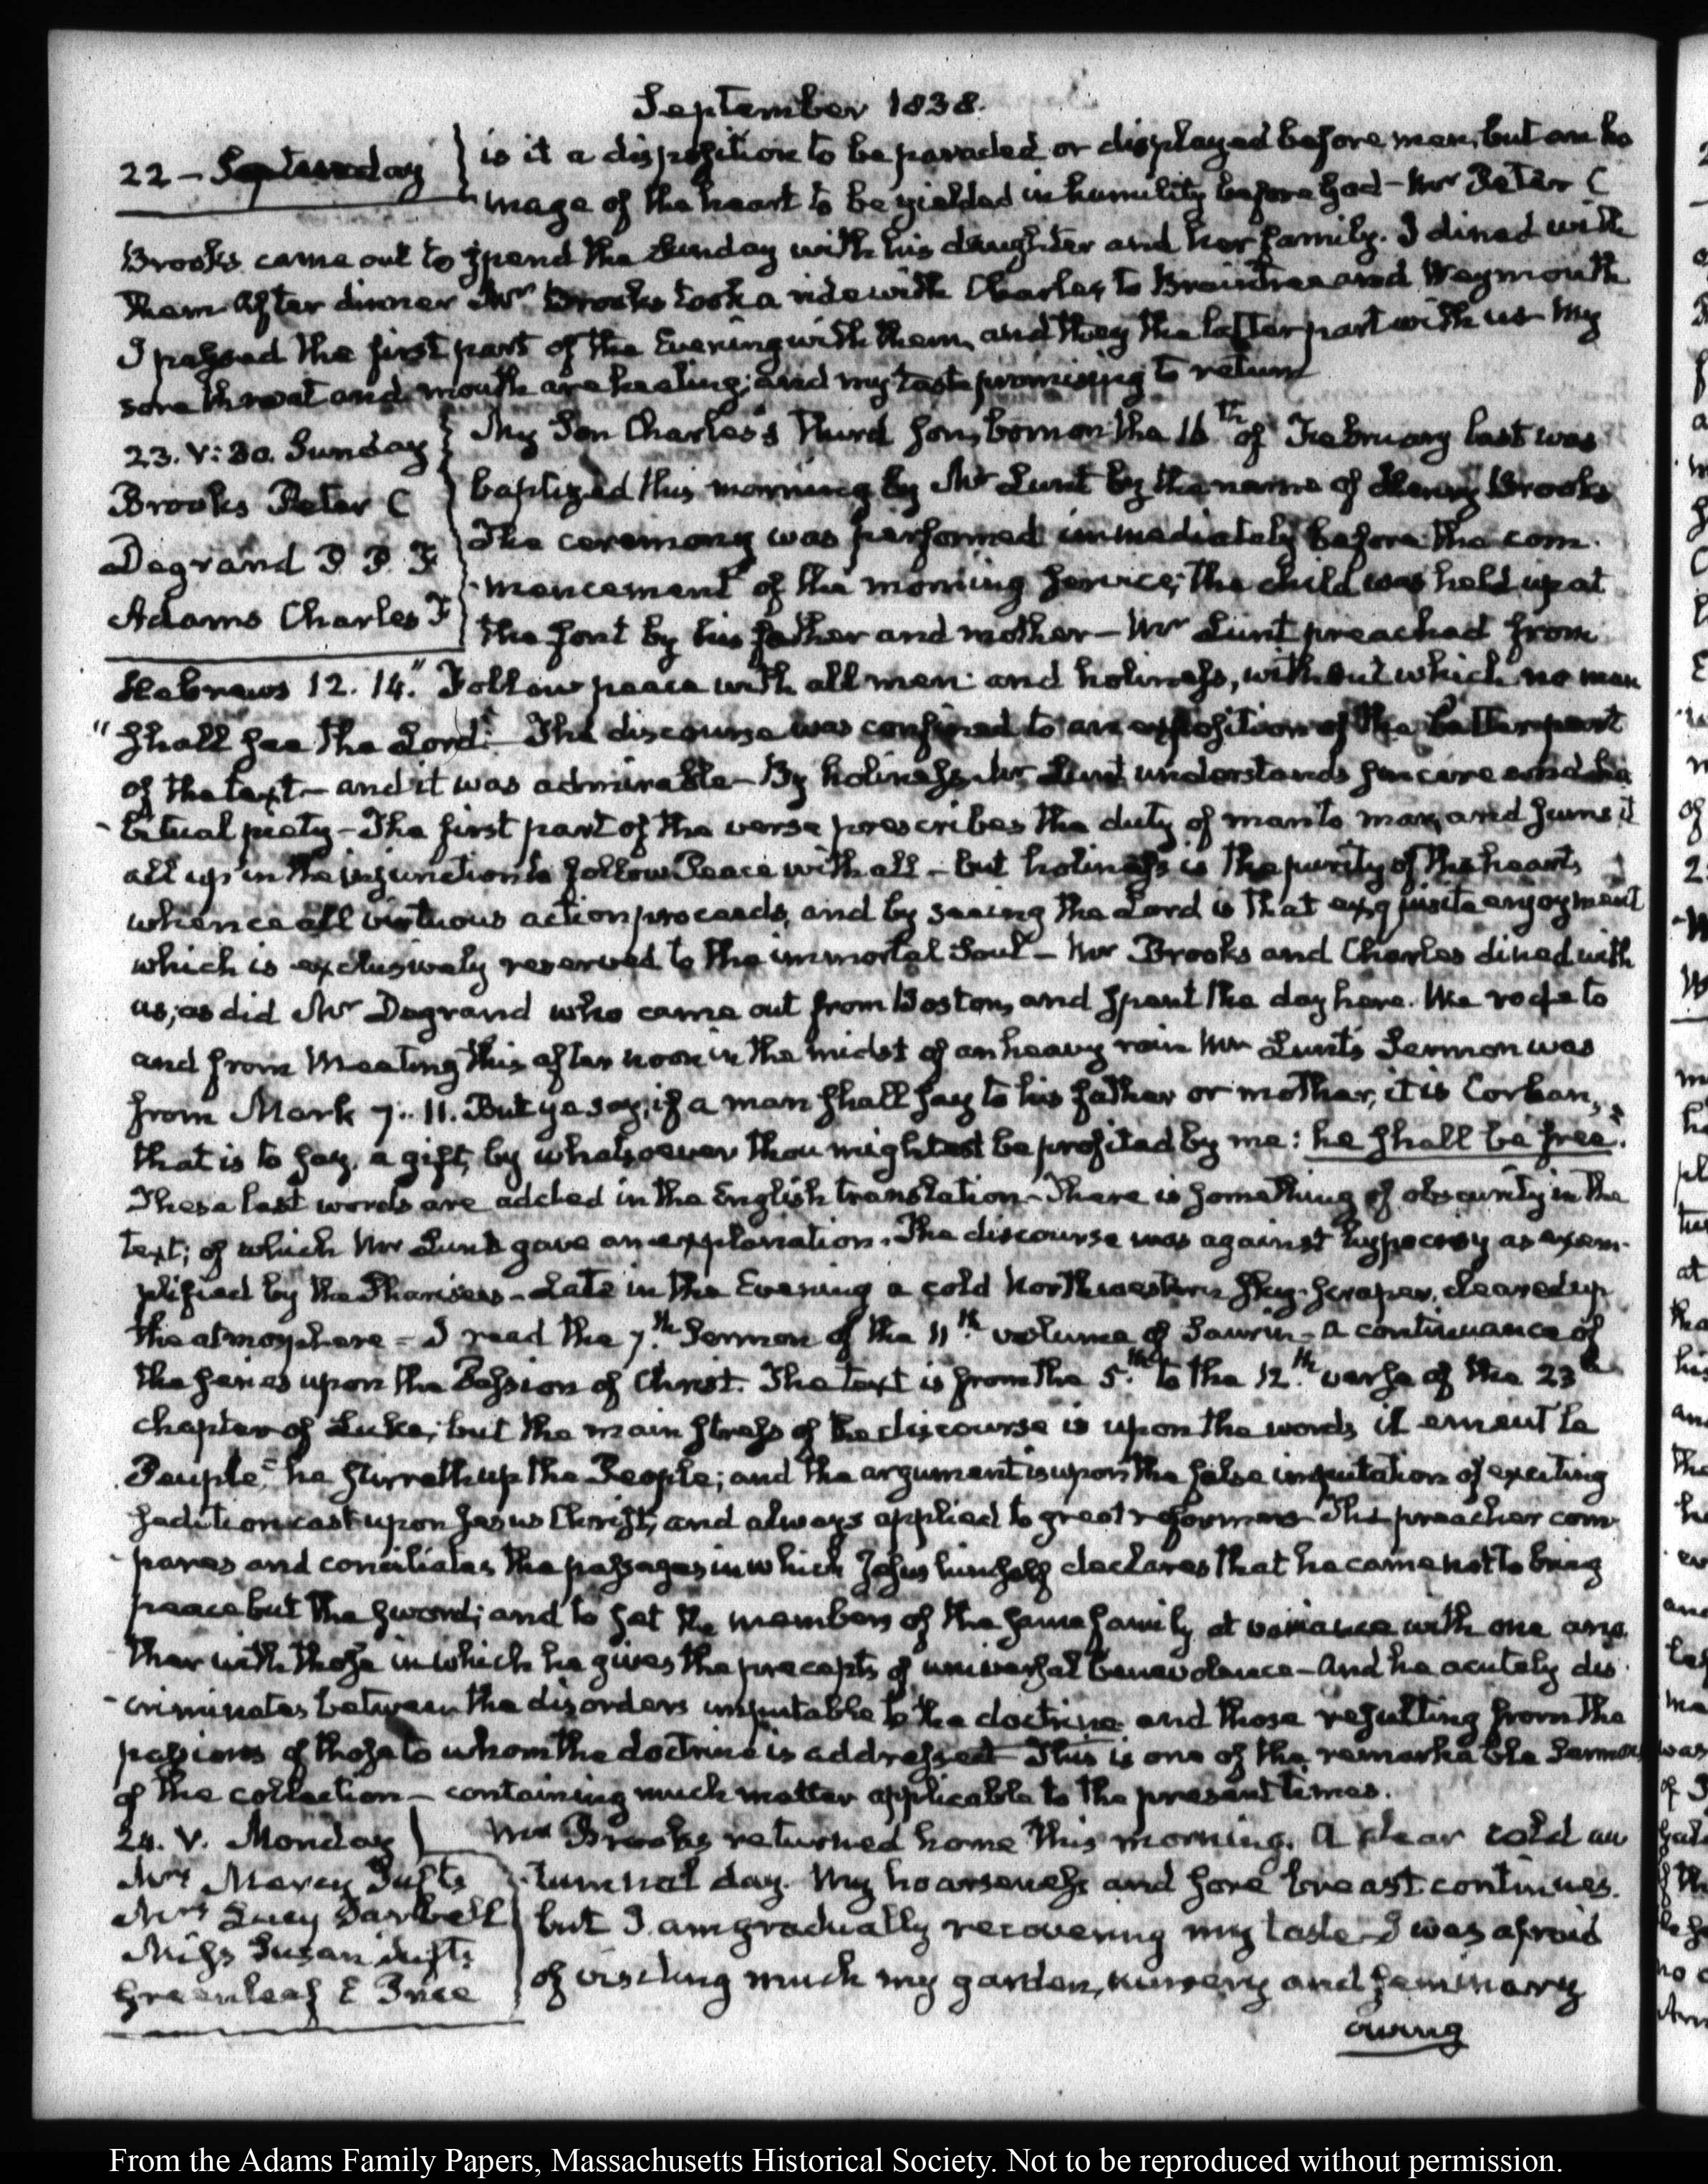 September 1838.
22 – Septurday
is it a disposition to be paraded or displayed before men, but an ho
mage of the heart to be yielded in humility before God – Mr Peter C
Brooks came out to spend the Sunday with his daughter and her family. I dined with
them. After dinner Mr Brooks took a ride with Charles to Braintree and Weymouth
I passed the first part of the Evening with them, and they the latter part with us – My
sore throat and mouth are healing; and my taste promising to return
23. V:30. Sunday
Brooks Peter C
Degrand P. P. F
Adams Charles F
My Son Charles's third son, born on the 16th of February last was
baptized this morning by Mr Lunt by the name of Henry Brooks
The ceremony was performed immediately before the com-
mencement of the morning service; the child was held up at
the font by his father and mother – Mr Lunt preached from
Hebrews 12. 14. "Follow peace with all men and holiness, without which no man
"shall see the Lord." The discourse was confined to an exposition of the latter part
of the text – and it was admirable – By holiness Mr Lunt understands sincere and ha
-bitual piety – The first part of the verse prescribes the duty of man to man, and sums it
all up in the injunction to follow Peace with all – but holiness is the purity of the heart,
whence all virtuous action proceeds, and by seeing the Lord is that exquisite enjoyment
which is exclusively reserved to the immortal Soul – Mr Brooks and Charles dined with
us, as did Mr Degrand who came out from Boston, and spent the day here. We rode to
and from Meeting this afternoon in the midst of an heavy rain Mr Lunt's Sermon was
from Mark 7. 11. But ye say, if a man shall say to his father or mother, it is Corban,
that is to say, a gift, by whatsoever thou mightest be profited by me: he shall be free."
These last words are added in the English translation – There is something of obscurity in the
text; of which Mr Lunt gave an explanation. The discourse was against hypocrisy as exem-
plified by the Pharisees – Late in the Evening a cold Northwestern sky-scraper, cleared up
the atmosphere – I read the 7th Sermon of the 11th volume of Saurin – a continuance of
the series upon the Passion of Christ. The text is from the 5th to the 12th verse of the 23d
chapter of Luke; but the main stress of the discourse is upon the words il emeut le
Peuple" he stirreth up the People; and the argument is upon the false imputation of exciting
sedition cast upon Jesus Christ, and always applied to great reformers The preacher com
-pares and conciliates the passages in which Jesus himself declares that he came not to bring
peace but the sword; and to set the members of the same family at variance with one ano
ther with those in which he gives the precepts of universal benevolence – And he acutely dis
-criminates between the disorders imputable to the doctrine and those resulting from the
passions of those to whom the doctrine is addressed – This is one of the remarkable Sermons
of the collection – containing much matter applicable to the present times.
24. V. Monday
Mrs Mercy Tufts
Mrs Lucy Tarbell
Miss Susan Tufts
Greenleaf E Price
Mr Brooks returned home this morning. A clear cold au
-tumnal day. My hoarseness and sore breast continues.
but I am gradually recovering my taste – I was afraid
of visiting much my garden, nursery and seminary
owing
From the Adams Family Papers, Massachusetts Historical Society. Not to be reproduced without permission.